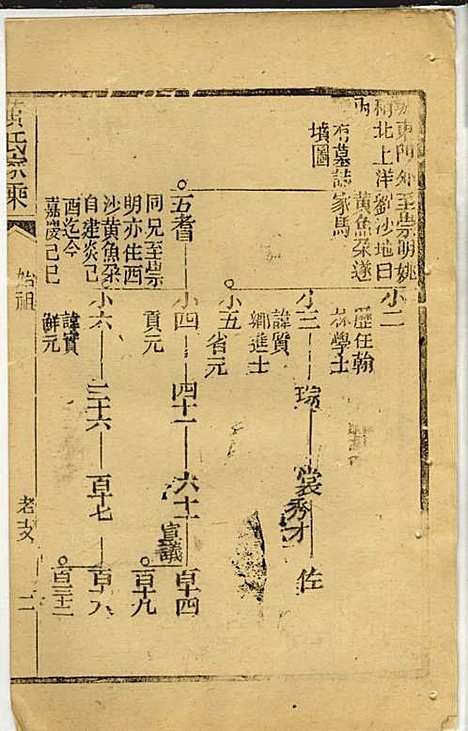 東門外至崇明姚
北上洋劉沙地曰
有墓誌 黃魚垜遂
墳圖 家焉
小二
歷任翰
林學士
小三 瑞 裳秀才 佐
諱質
鄉進士
小五
省元
五耆
小四 四十一 六十一 百十四
宣議
貢元
百十九
同兄至崇
明亦住西
沙黃魚垜
自建炎己
酉迄今
嘉慶己巳
小六 二十六 百十七 百十六
諱賢
解元
百二十二
黃氏家乘
始祖
老支
二